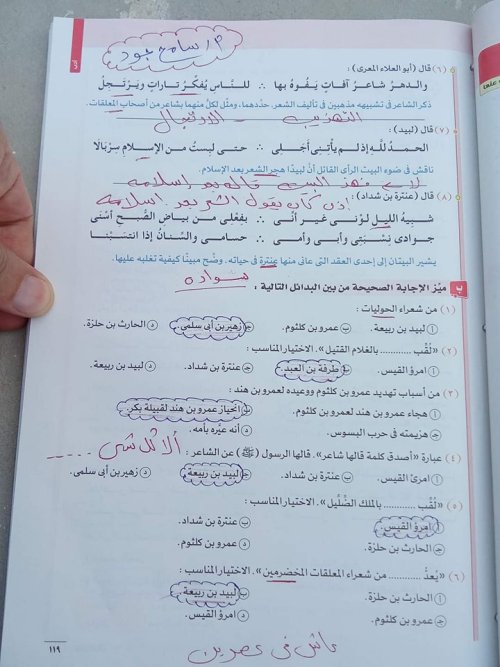 م/ سامح جود
أدب
(٦) قال (أبو العلاء المعرى) :
والدهر شاعر آفاتٍ يَفُوهُ بها ∴ للنَّاس يُفكِّرُ تاراتٍ ويَرْتجلُ
ذكر الشاعر فى تشبيهه مذهبين فى تأليف الشعر. حدِّدهما، ومثِّل لكلٍّ منهما بشاعر من أصحاب المعلقات.
التهذيب الارتجال
(٧) قال (لبيد) :
الحمدُ للَّهِ إذ لم يأتِنى أجَلى ∴ حتى لبِستُ من الإسلامِ سِرْبالًا
ناقش فى ضوء البيت الرأى القائل أنَّ لبيدًا هجر الشعر بعد الإسلام.
لأن هذا البيت قاله بعد إسلامه
إذن كان يقول الشعر بعد إسلامه
(٨) قال (عنترة بن شداد) :
شبيهُ الليلِ لَوْنى غيرَ أنِّى ∴ بفِعْلِى من بياضِ الصُّبحِ أسْنَى
جوادى نِسْبَتِى وأبى وأُمى ∴ حسامى والسِّنانُ إذا انتسَبْنا
يشير البيتان إلى إحدى العقد التى عانى منها عنترة فى حياته. وضِّح مبينًا كيفية تغلبه عليها.
سواده
ب ميِّز الإجابة الصحيحة من بين البدائل التالية :
(١) من شعراء الحوليات :
أ لبيد بن ربيعة. ب عمرو بن كلثوم. ج زهير بن أبى سلمى. د الحارث بن حلزة.
(٢) «لُقِّب ............ بالغلام القتيل». الاختيار المناسب :
أ امرؤ القيس. ب طرفة بن العبد. ج عنترة بن شداد. د لبيد بن ربيعة.
(٣) من أسباب تهديد عمرو بن كلثوم ووعيده لعمرو بن هند :
أ هجاء عمرو بن كلثوم لعمرو بن هند. ب انحياز عمرو بن هند لقبيلة بكر.
ج هزيمته فى حرب البسوس. د أنه عيَّره بأمه.
(٤) عبارة «أصدق كلمة قالها شاعر». قالها الرسول (ﷺ) عن الشاعر : ألا كل شىء
أ امرئ القيس. ب عنترة بن شداد. ج لبيد بن ربيعة. د زهير بن أبى سلمى.
(٥) «لُقِّب ............ بالملك الضِّلِّيل». الاختيار المناسب :
أ امرؤ القيس. ب عنترة بن شداد.
ج الحارث بن حلزة. د عمرو بن كلثوم.
(٦) «يُعدُّ ............ من شعراء المعلقات المخضرمين». الاختيار المناسب :
أ الحارث بن حلزة. ب لبيد بن ربيعة.
ج عمرو بن كلثوم. د امرؤ القيس.
عاش فى عصرين
١١٩